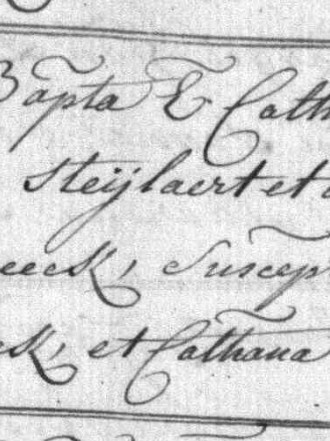 Bapta E Cath
Steijlaert et
eeck, Suscep
ck, et Cathana